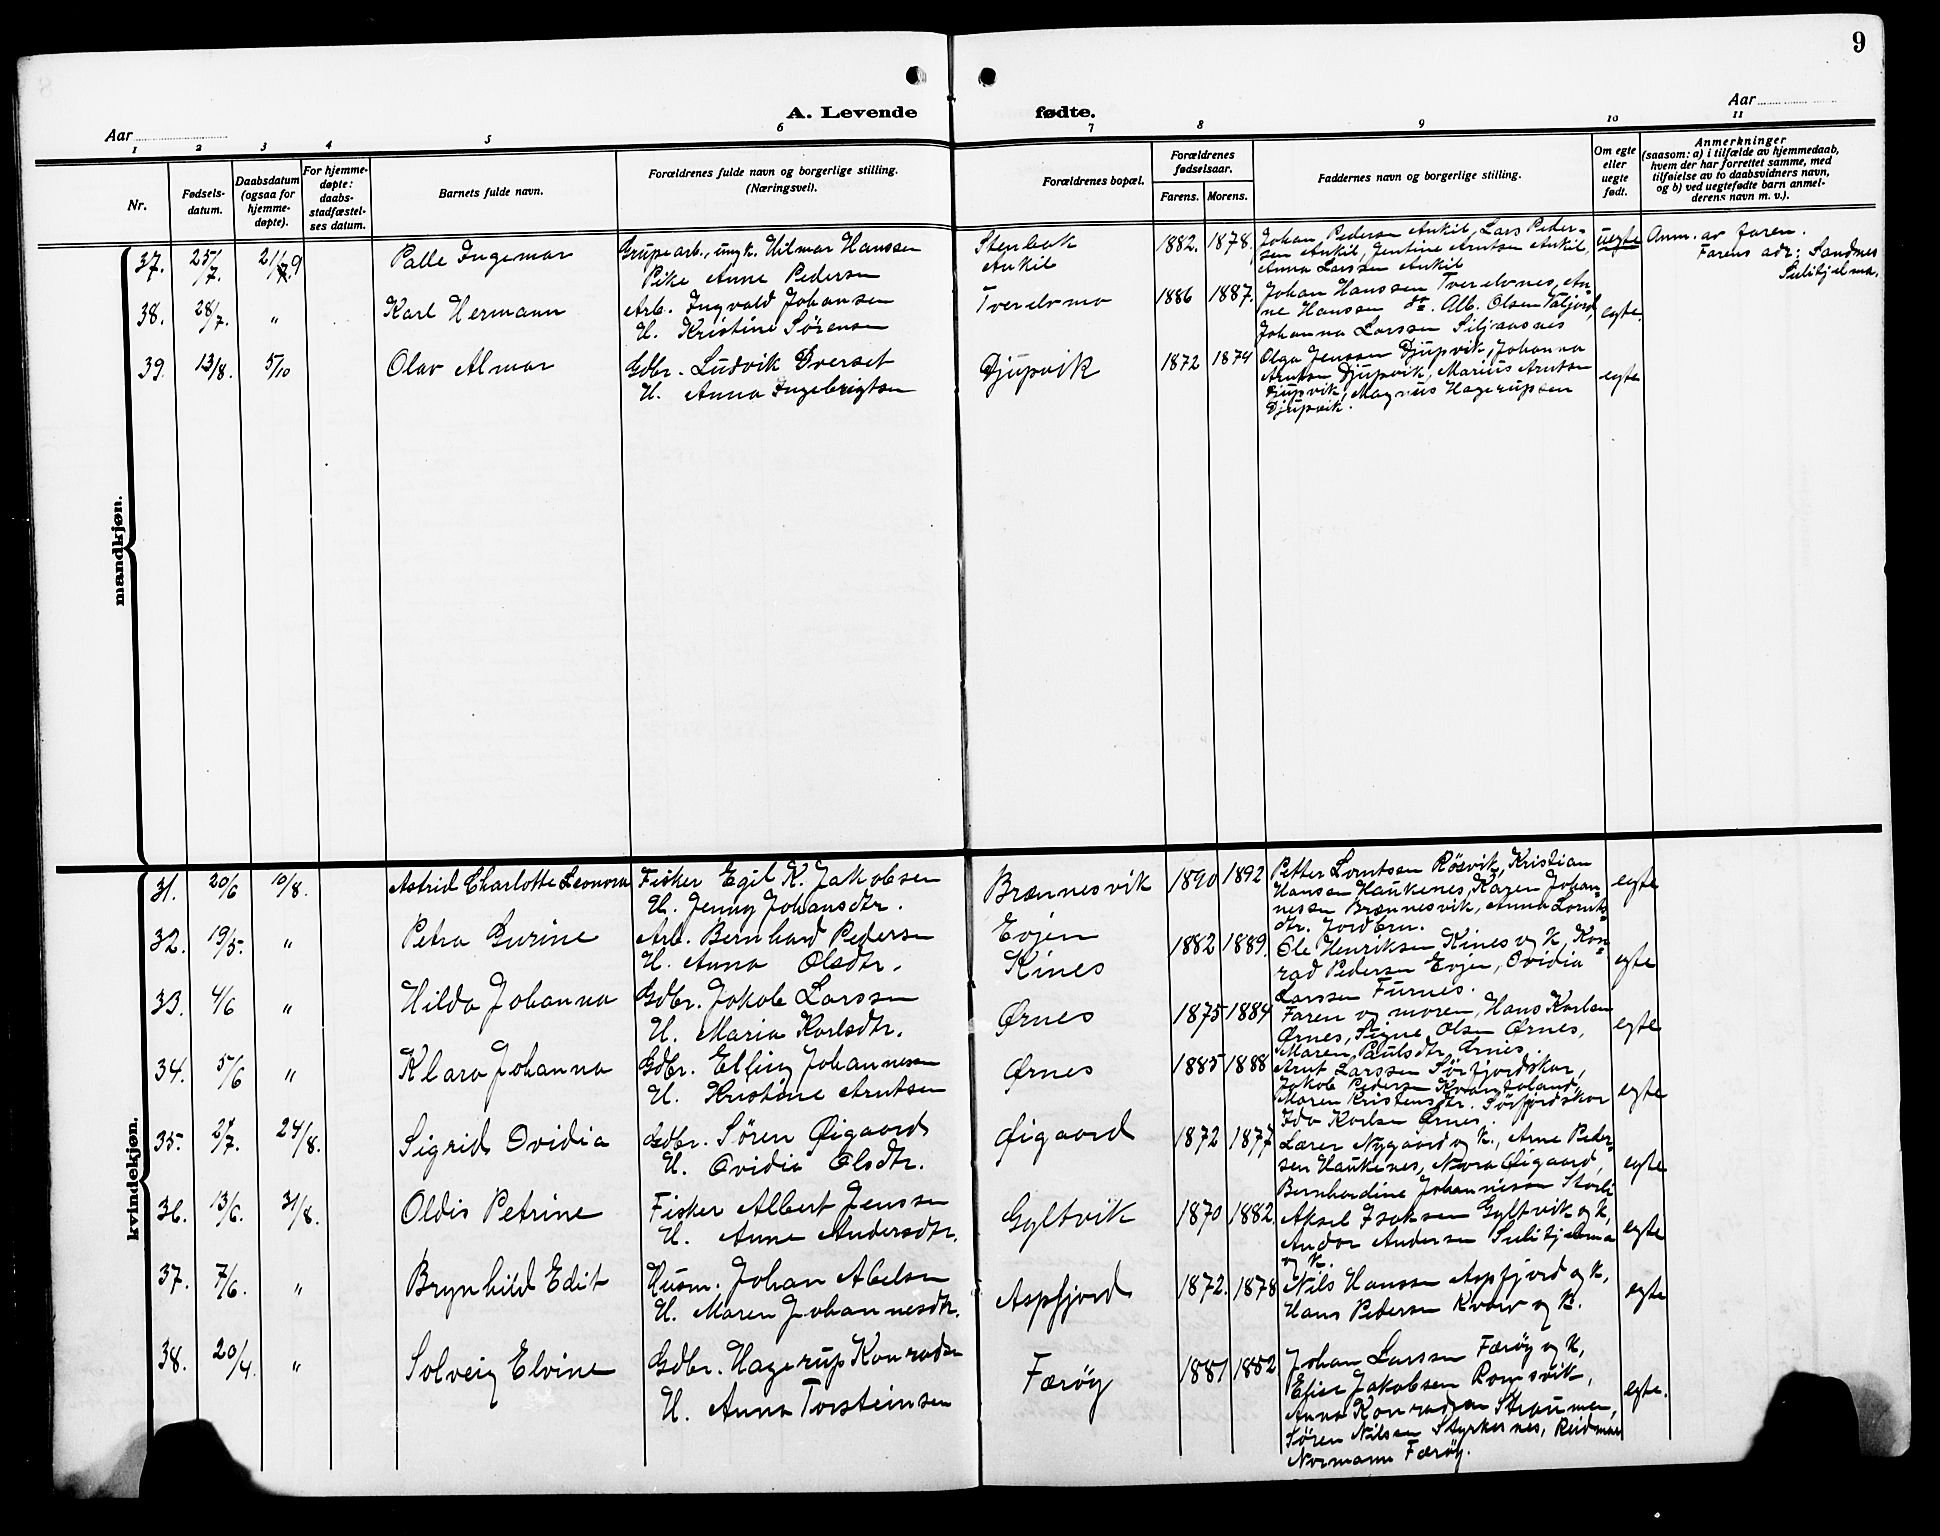 9
A. Levende fødte.
Aar
Aar
1 2 3 4 5 6 7 8 9 10 11
Nr.
Fødsels-
datum.
Daabsdatum
(ogsaa for
hjemme-
døpte).
For hjemme-
døpte:
daabs-
stadfæstel-
ses datum.
Barnets fulde navn.
Forældrenes fulde navn og borgerlige stilling.
(Næringsvei).
Forældrenes bopæl.
Forældrenes
fødselsaar.
Farens. Morens.
Faddernes navn og borgerlige stilling.
Om egte
eller
uegte
født.
Anmerkninger
(saasom: a) i tilfælde av hjemmedaab,
hvem der har forrettet samme, med
tilføielse av to daabsvidners navn,
og b) ved uegtefødte barn anmel-
derens navn m. v.).
mandkjøn.
37. 25/7. 21/9 Palle Ingemar
Grubearb., ungk. Hilmar Hanssen
Pike Anne Pedersen
Stenbak
Ankil
1882. 1878.
Johan Pedersen Ankil, Lars Peder-
sen Ankil, Jentine Arntsen Ankil,
Anna Larssen Ankil
uegte
Anm. av faren.
Farens adr: Sandnes
Sulitjelma.
38. 28/7. " Karl Hermann
Arb. Ingvald Johansen
H. Kristine Sørensen
Tverelvmo
1886 1887.
Johan Hanssen Tverelvnes, An-
ne Hanssen do. Alb. Olsen Valjord,
Johanna Larssen Siljasnes
egte.
39. 13/8. 5/10 Olav Almar
Gdbr. Ludvik Sverset
H. Anna Ingebrigtsen
Djupvik
1872 1874
Olga Jenssen Djupvik, Johanna
Arntsen Djupvik, Marius Arntsen
Djupvik, Magnus Hagerupsen
Djupvik.
egte
kvindekjøn.
31. 20/6 10/8. Astrid Charlotte Leonora
Fisker Egil K. Jakobsen
H. Jenny Johansdtr.
Brænnesvik
1890 1892
Petter Lorntsen Røsvik, Kristian
Hanssen Haukenes, Karen Johan-
nessen Brænnesvik, Anna Lornts-
dtr. Jordbru.
egte
32. 19/5. " Petra Gurine
Arb. Bernhard Pedersen
H. Anna Olsdtr.
Evjen
Kines
1882 1889.
Ole Henriksen Kines og K, Kon-
rad Pedersen Evjen, Ovidia
Larssen Furnes.
egte
33. 4/6 " Hilda Johanna
Gdbr. Jakob Larssen
H. Maria Karlsdtr.
Ørnes
1875 1884
Faren og moren, Hans Karlsen
Ørnes, Signe Olsen Ørnes,
Maren Paulsdtr Ørnes
egte
34. 5/6 " Klara Johanna
Gdbr. Elling Johannesen
H. Kristine Arntsen
Ørnes
1885 1888
Arnt Larssen Sørfjordskar,
Jakob Pedersen
Maren Kristensdtr. Sørfjordskar
Ida Karlsen Ørnes.
egte
35. 2/7. 24/8. Sigrid Ovidia
Gdbr. Søren Øigaard
H. Ovidia Olsdtr.
Øigaard
1872 1877
Lærer Nygaard og K., Arne Peder-
sen Haukenes, Nora Øigaard,
Bernhardine Johannesen Storli
egte
36. 13/6. 31/8. Oldis Petrine
Fisker Albert Jenssen
H. Anne Andersdtr.
Gyltvik
1870 1882
Aksel Isaksen Gyltvik og K,
Andor Andersen Sulitjelma
og K.
egte
37. 7/6. " Brynhild Edit
Husm. Johan Abelsen
H. Maren Johannesdtr.
Aspfjord
1872. 1878
Nils Hanssen Aspfjord og K,
Hans Pedersen Kvarv og K.
egte
38. 20/4. " Solveig Elvine
Gdbr. Hagerup Konradsen
H. Anna Torsteinsen
Færøy
1881 1882
Johan Larssen Færøy og K,
Elise Jakobsen Romsvik,
Anna Konradsen Straumen,
Søren Nilsen Styrkesnes, Reidmar
Normann Færøy.
egte.